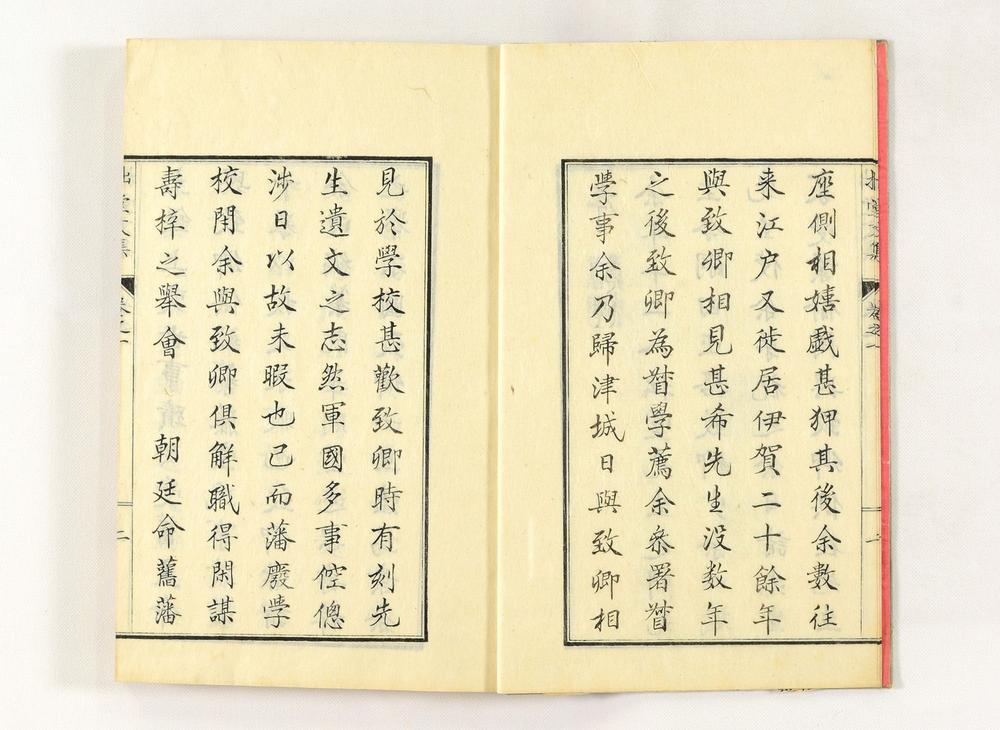 座側相嬉戯甚狎其後余數往
来江戸又徙居伊賀二十餘年
與致卿相見甚希先生没数年
之後致卿為督學薦余叅署督
學事余乃歸津城日與致卿相
見於學校甚歡致卿時有刻先
生遺文之志然軍國多事倥傯
渉日以故未暇也已而藩廢學
校閉余與致卿俱解職得閑謀
壽梓之舉會 朝廷命舊藩